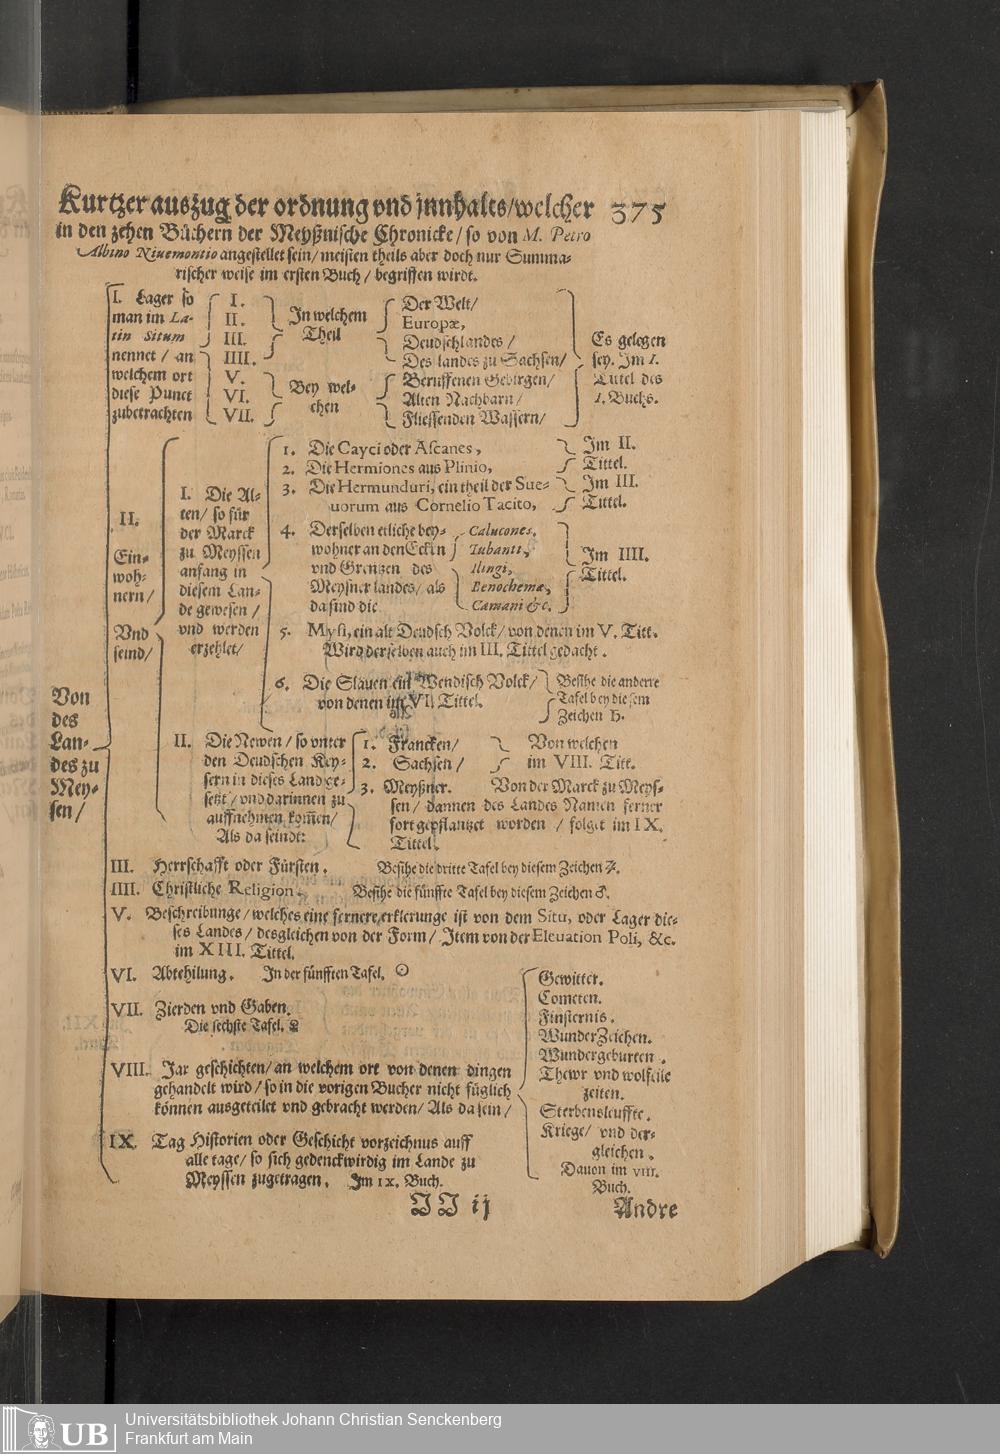 Kurtzer auszug der ordnung vnd jnnhalts/welcher 375
in den zehen Büchern der Meyßnische Chronicke/ so von M. Petro
Albino Niuemontio angestellet sein/ meisten theils aber doch nur Summa-
rischer weise im ersten Buch/ begriffen wirdt.
I. Lager so
man im La-
tin Situm
nennet / an
welchem ort
diese Punct
zubetrachten
I.
II.
III.
IIII.
V.
VI.
VII.
In welchem
Theil
Bey wel-
chen
Der Welt/
Europæ,
Deudschlandes /
Des landes zu Sachsen/
Beruffenen Gebirgen/
Alten Nachbarn/
Fliessenden Wassern/
Es gelegen
sey. Im I.
Tittel des
I. Buchs.
Von
des
Lan-
des zu
Mey-
sen/
II.
Ein-
woh-
nern/
Vnd
seind/
I. Die Al-
ten/ so für
der Marck
zu Meyssen
anfang in
diesem Lan-
de gewesen /
vnd werden
erzehlet/
1. Die Cayci oder Ascanes,
2. Die Hermiones aus Plinio,
Im II.
Tittel.
3. Die Hermunduri, ein theil der Sue-
uorum aus Cornelio Tacito,
Im III.
Tittel.
4. Derselben etliche bey-
wohner an den Ecken
vnd Grentzen des
Meysner landes/ als
da sind die
Calucones,
Tubanti,
Ilingi,
Benochemæ,
Camani &c.
Im IIII.
Tittel.
5. Mysi, ein alt Deudsch Volck/ von denen im V. Titt.
Wird derselben auch im III. Tittel gedacht.
6. Die Slauen ein Wendisch Volck/
von denen im VI. Tittel.
Besihe die anderre
Tafel bey diesem
Zeichen ♄.
II. Die Newen / so vnter
den Deudschen Key-
sern in dieses Land ge-
setzt / vnd darinnen zu
auffnehmen kom̃en/
Als da seindt:
1. Francken/
2. Sachsen /
Von welchen
im VIII. Titt.
3. Meyßner. Von der Marck zu Meys-
sen/ dannen des Landes Namen ferner
fortgepflantzet worden / folget im IX.
Tittel.
III. Herrschafft oder Fürsten. Besihe die dritte Tafel bey diesem Zeichen ♃.
IIII. Christliche Religion. Besihe die fünffte Tafel bey diesem Zeichen ♂.
V. Beschreibunge/ welches eine fernere erklerunge ist von dem Situ, oder Lager die-
ses Landes/ desgleichen von der Form/ Item von der Eleuation Poli, &c.
im XIII. Tittel.
VI. Abtehilung. In der fünfften Tafel. ☉
VII. Zierden vnd Gaben.
Die sechste Tafel. ♀
VIII. Jar geschichten/ an welchem ort von denen dingen
gehandelt wird/ so in die vorigen Bucher nicht füglich
können ausgeteilet vnd gebracht werden/ Als da sein/
Gewitter.
Cometen.
Finsternis.
WunderZeichen.
Wundergeburten.
Thewr vnd wolfeile
zeiten.
Sterbensleuffte.
Kriege/ vnd der-
gleichen.
Dauon im VIII.
Buch.
IX. Tag Historien oder Geschicht vorzeichnus auff
alle tage/ so sich gedenckwirdig im Lande zu
Meyssen zugetragen. Im IX. Buch.
JJ ij Andre
UB Universitätsbibliothek Johann Christian Senckenberg
Frankfurt am Main